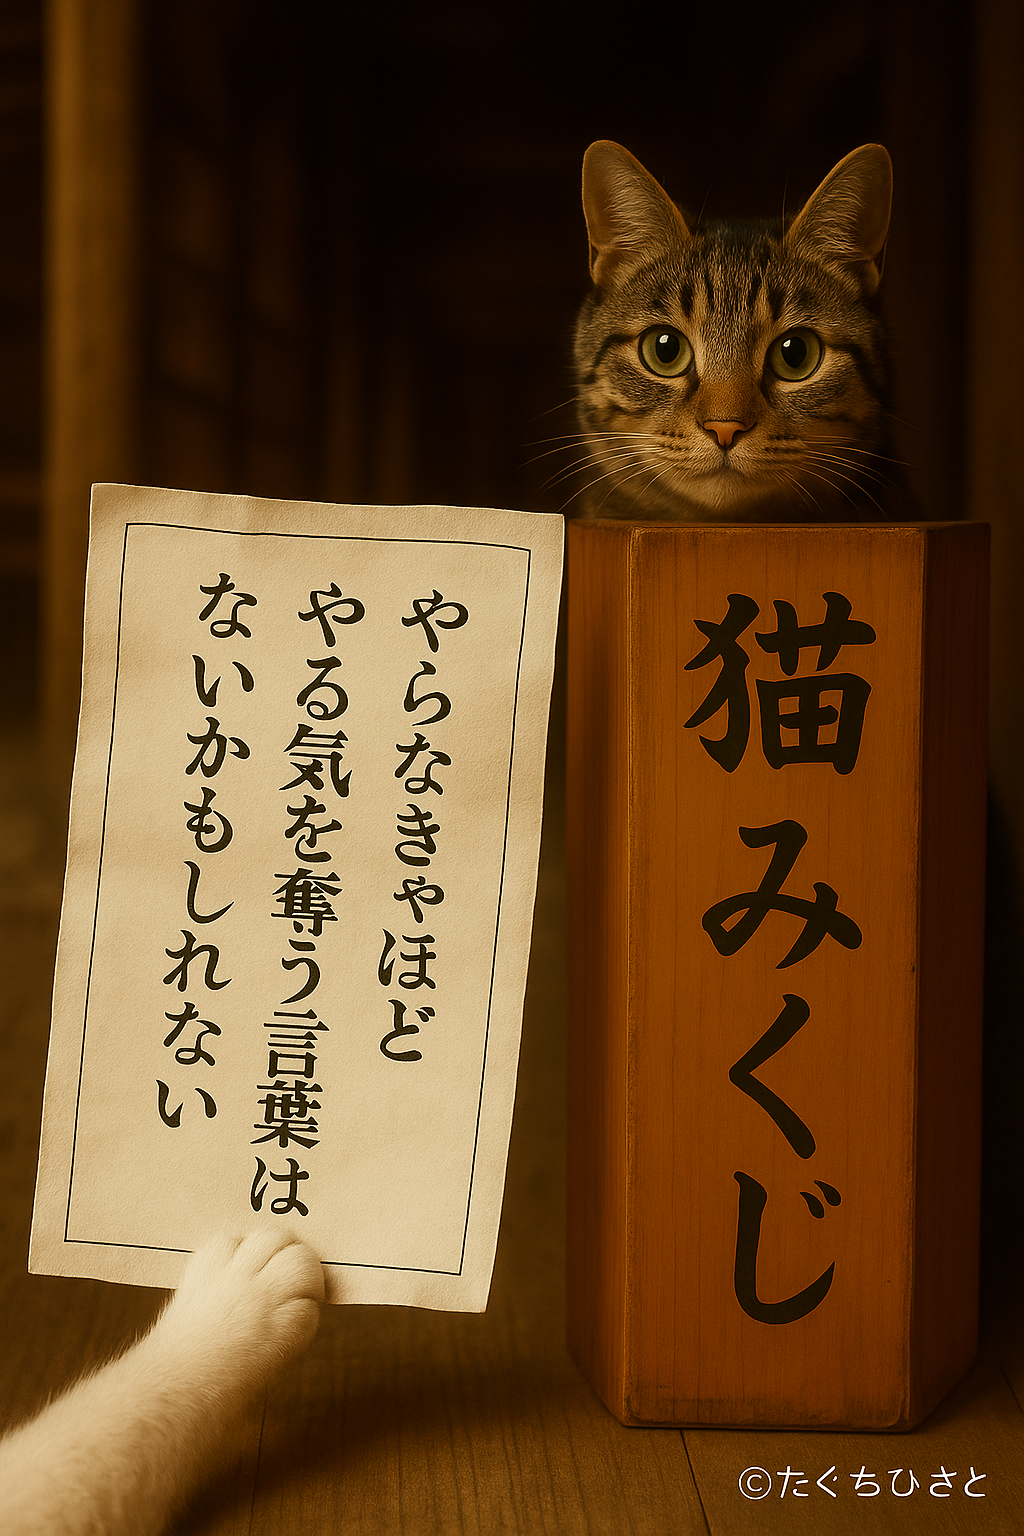 やらなきゃほど
やる気を奪う言葉は
ないかもしれない
猫みくじ
©たぐちひさと